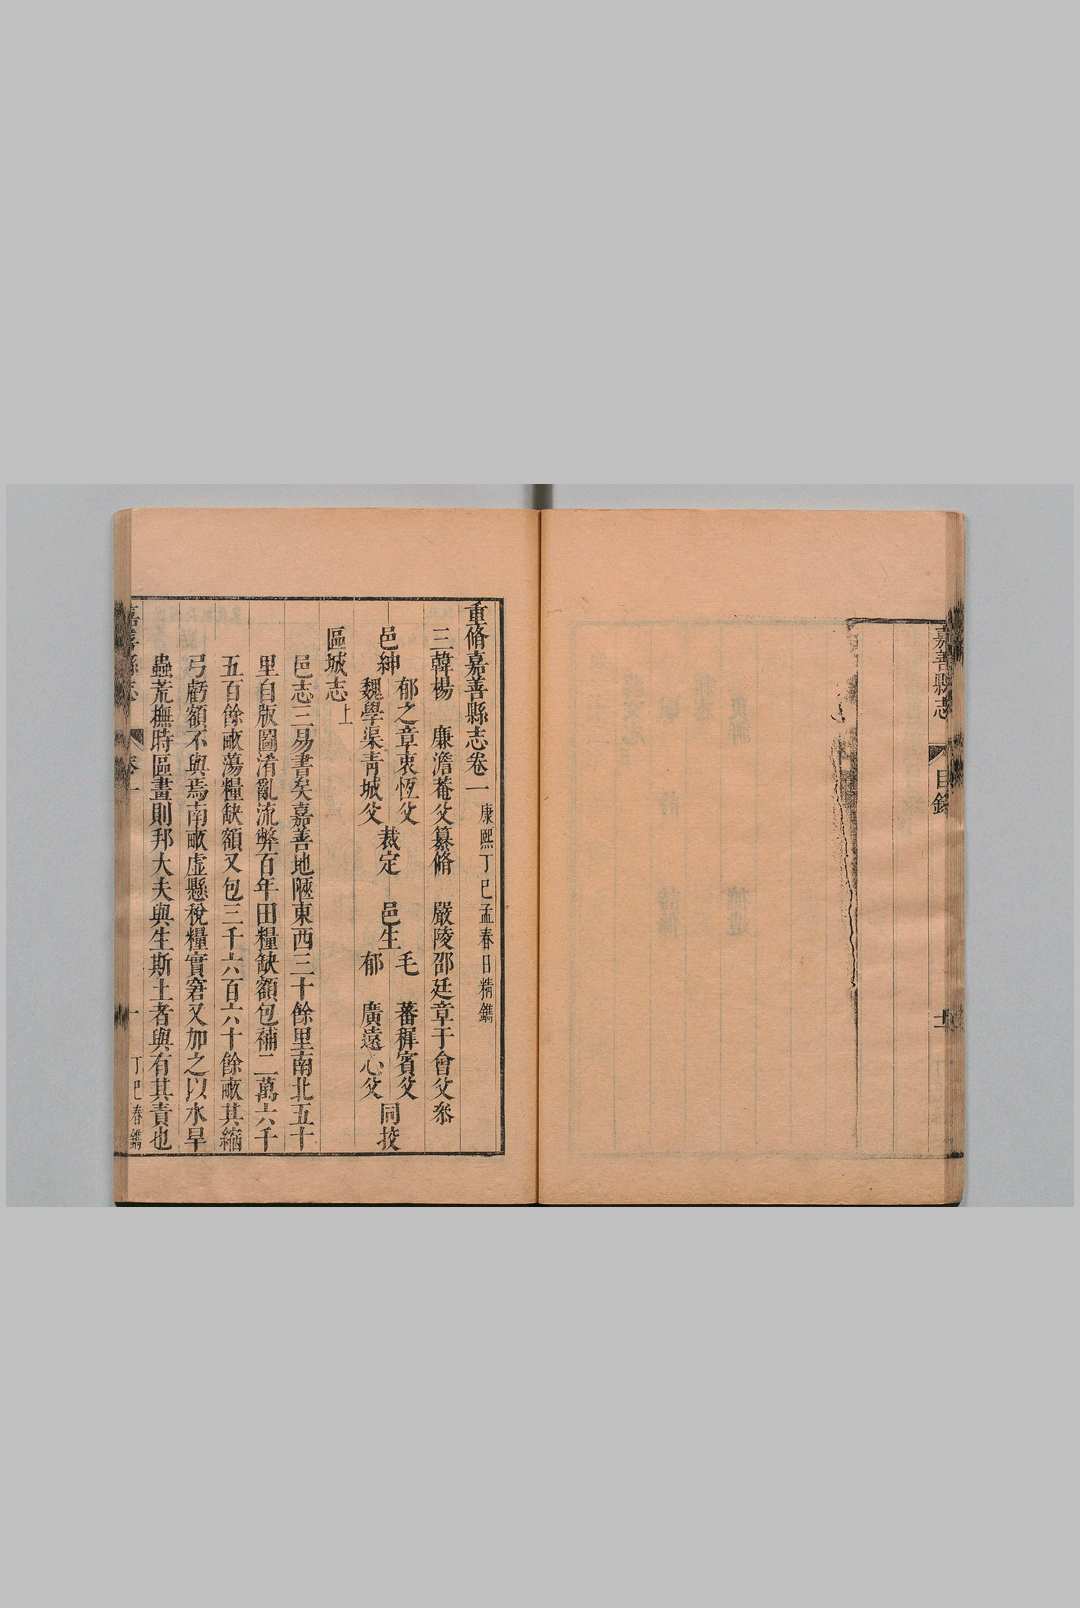 嘉善縣志
目錄
重脩嘉善縣志卷一 康熙丁巳孟春日精鐫
三韓楊 廉澹菴父纂脩 嚴陵邵廷章于會父叅
邑紳
郁之章衷恆父
魏學渠靑城父
裁定
邑生
毛 蕃穉賓父
郁 廣遠心父
同挍
區域志上
邑志三易書矣嘉善地陿東西三十餘里南北五十
里自版圖淆亂流弊百年田糧缺額包補二萬六千
五百餘畝蕩糧缺額又包三千六百六十餘畝其縮
弓虧額不與焉南畝虛懸稅糧實窘又加之以水旱
蟲荒撫時區畫則邦大夫與生斯土者與有其責也
嘉善縣志 卷一 一 丁巳春鐫